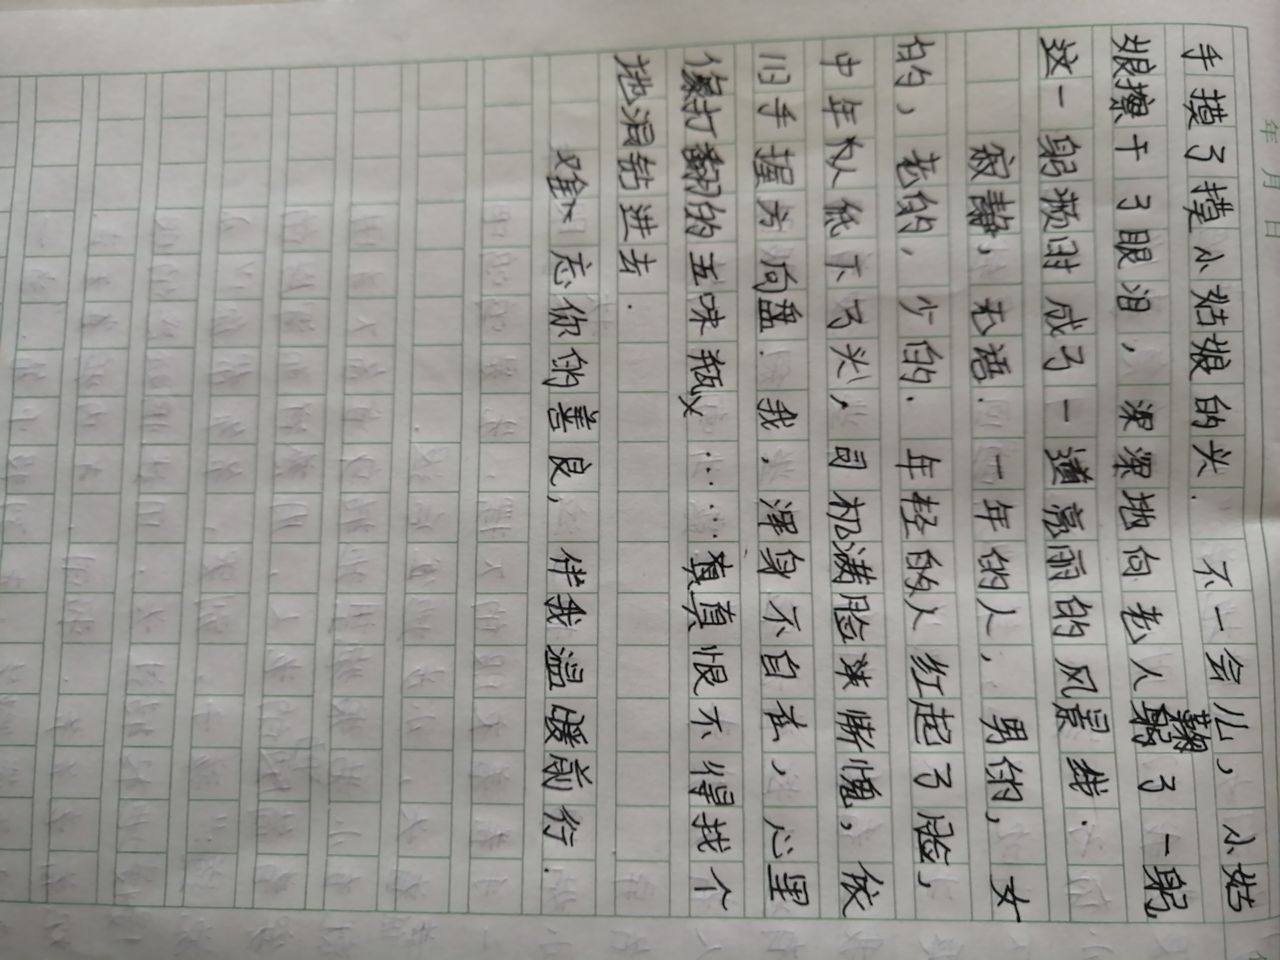 年 月 日
手摸了摸小姑娘的头.不一会儿,小姑
娘擦干了眼泪,深深地向老人鞠了一躬
这一躬频时成了一道亮丽的风景线.
寂静,无语.一年的人,男的,女
的,老的,少的.年轻的人红起了脸,
中年人低下了头,司机满脸惭愧,依
旧手握方向盘.我,浑身不自在,心里
像打翻的五味瓶……真恨不得找个
地洞钻进去.
难忘你的善良,伴我温暖前行.